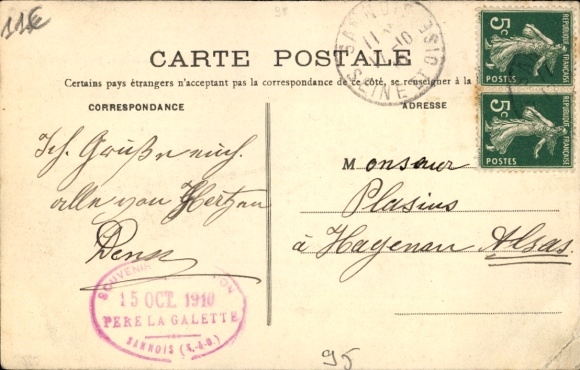 11€
95
5c
RÉPUBLIQUE FRANÇAISE
POSTES
5c
RÉPUBLIQUE FRANÇAISE
POSTES
SANNOIS
11
10
SEINE-&-OISE
CARTE POSTALE
Certains pays étrangers n'acceptent pas la correspondance de ce côté, se renseigner à la
CORRESPONDANCE
ADRESSE
Ich Grüße euch
alle von Hertzen
Monsieur
Plasius
à Hagenau Alsas.
SOUVENIR
15 OCT. 1910
PERE LA GALETTE
SANNOIS (S.-&-O.)
95